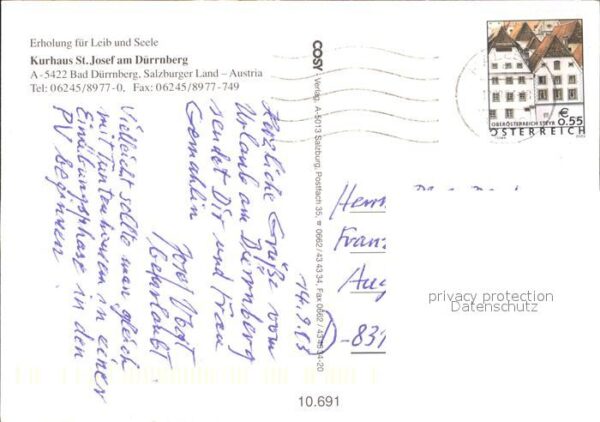 Erholung für Leib und Seele
Kurhaus St. Josef am Dürrnberg
A-5422 Bad Dürrnberg, Salzburger Land – Austria
Tel: 06245/8977-0, Fax: 06245/8977-749
14.9.03
Herzliche Grüße vom
Urlaub am Dürrnberg
sendet Dir und Frau
Gemahlin
Josef Vogt
Vielleicht sollte man gleich
mit Tuntenhausen in einer
Einübungsphase in den
PV beginnen.
COSY - Verlag, A-5013 Salzburg, Postfach 35, ☎ 0662/43 43 34, Fax 0662/43 43 34-20
€ 0.55
OBERÖSTERREICH STEYR
ÖSTERREICH
Herrn
Franz
-831
privacy protection
Datenschutz
10.691